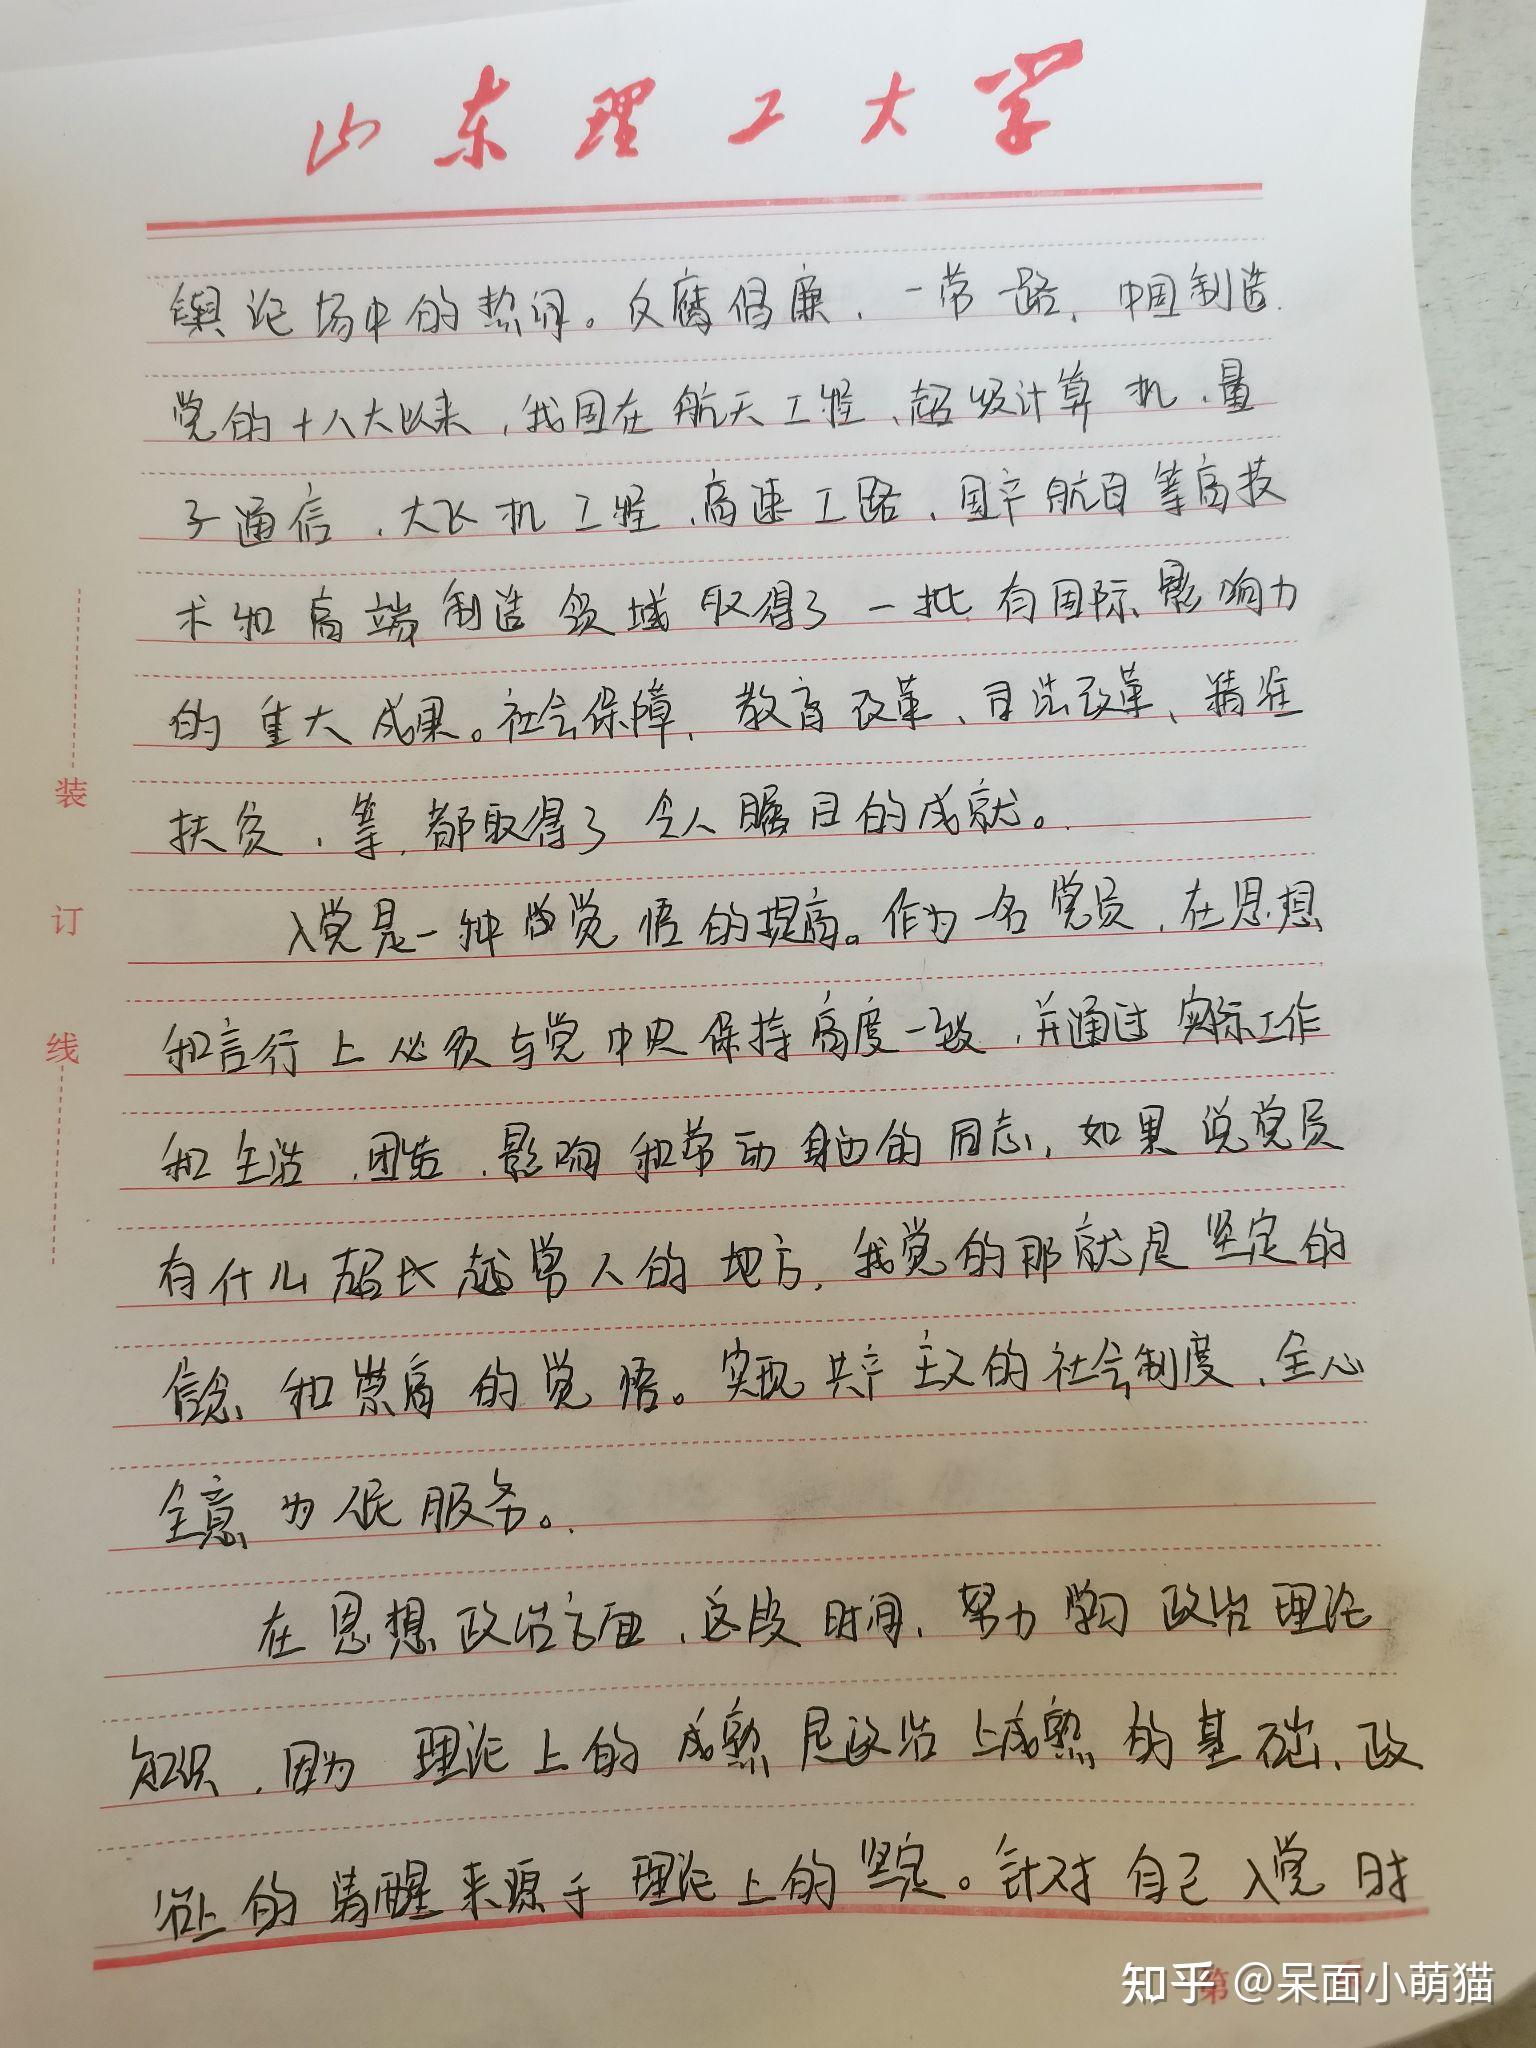 山东理工大学
舆论场中的热词。反腐倡廉、一带一路、中国制造.
党的十八大以来,我国在航天工程、超级计算机、量
子通信、大飞机工程、高速工路、国产航母等高技
术和高端制造领域取得了一批有国际影响力
的重大成果。社会保障、教育改革、司法改革、精准
扶贫、等,都取得了令人瞩目的成就。
入党是一种觉悟的提高。作为一名党员,在思想
和言行上必须与党中央保持高度一致,并通过实际工作
和生活,团结、影响和带动身边的同志,如果说党员
有什么超越常人的地方,我觉的那就是坚定的
信念和崇高的觉悟。实现共产主义的社会制度、全心
全意为人民服务。
在思想政治方面,这段时间,努力学习政治理论
知识,因为理论上的成熟是政治上成熟的基础,政
治上的清醒来源于理论上的坚定。针对自己入党时
装
订
线
第
知乎 @呆面小萌猫